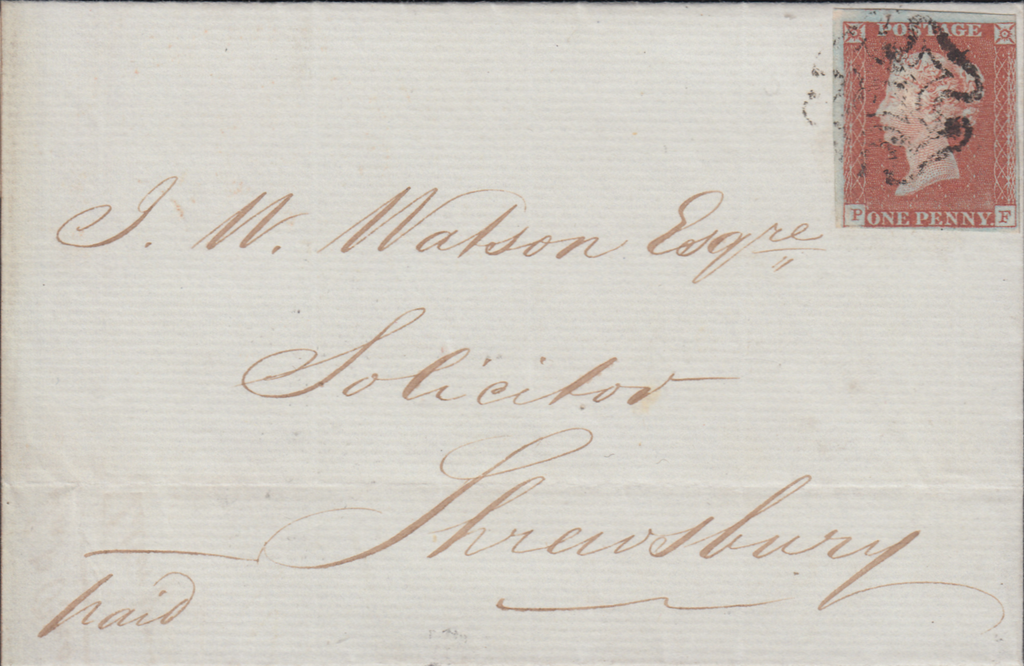 POSTAGE
P ONE PENNY. F
J. W. Watson Esqre
Solicitor
Shrewsbury
paid